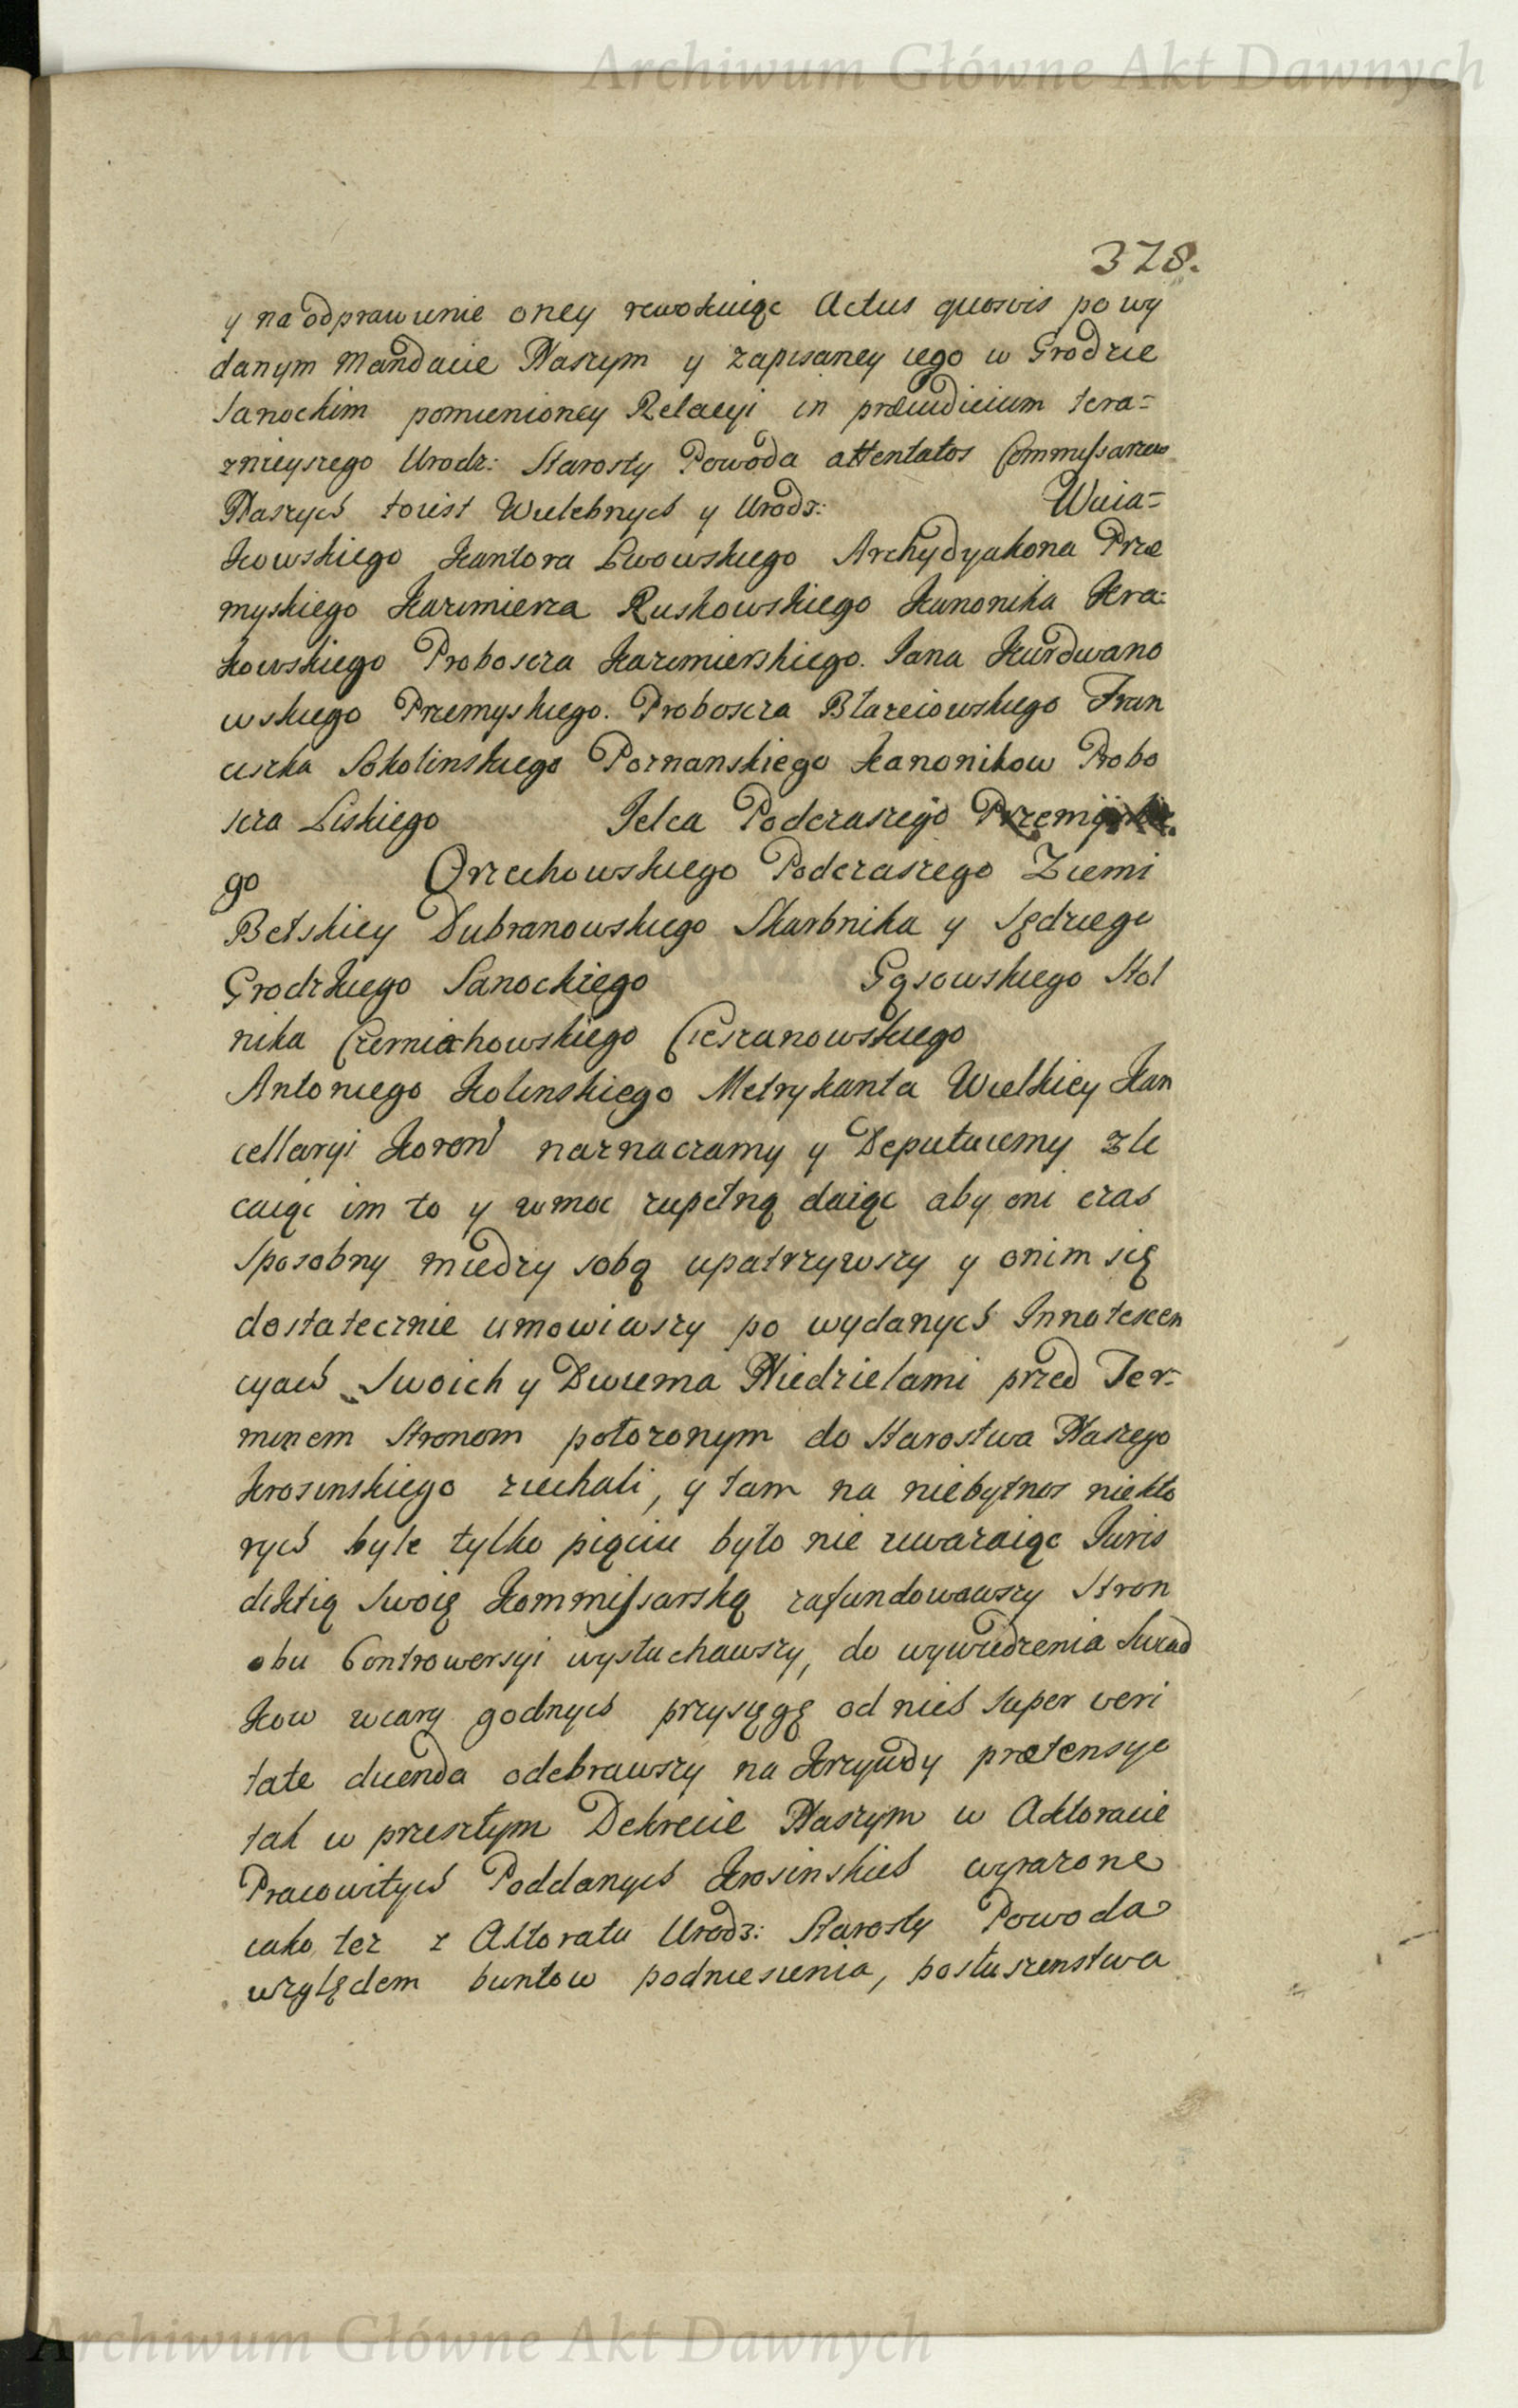 Archiwum Główne Akt Dawnych
378.
y na odprawienie oney rewokuiąc Actus quosvis po wy
danym Mandacie Naszym y zapisaney iego w Grodzie
Sanockim pomienioney Relacyi in præiudicium tera=
znieyszego Urodz: Starosty Powoda attentatos Commissarzow
Naszych to iest Wielebnych y Urodz: Wuia=
kowskiego Kantora Lwowskiego Archydyakona Prze
myskiego Kazimierza Ruskowskiego Kanonika Kra:
kowskiego Proboscza Kazimierskiego. Jana Kurdwano
wskiego Przemyskiego. Proboscza Błazeiowskiego Fran
ciszka Sokolinskiego Poznanskiego Kanonikow Probo
scza Liskiego Jelca Podczaszego Przemyskie
go Orzechowskiego Podczaszego Ziemi
Bełskiey Dubranowskiego Skarbnika y Sędziego
Grodzkiego Sanockiego Gąsowskiego Stol
nika Czerniechowskiego Cieszanowskiego
Antoniego Kolinskiego Metrykanta Wielkiey Kan
cellaryi Koron naznaczamy y Deputuiemy zle
caiąc im to y w moc zupełną daiąc aby oni czas
sposobny miedzy sobą upatrzywszy y onim się
dostatecznie umowiwszy po wydanych Innotescen
cyach Swoich y Dwiema Niedzielami przed Ter=
minem Stronom położonym do Starostwa Naszego
Krosinskiego ziechali, y tam na niebytnos niekto
rych byle tylko pięciu było nie uwazaiąc Juris
diktią Swoię Kommissarską zafundowawszy Stron
obu Controwersyi wysłuchawszy, do wywiedzenia Swiad
kow wiary godnych przysięgę od nich super veri
tate dicenda odebrawszy na Krzywdy prætensye
tak w przeszłym Dekrecie Naszym w Aktoracie
Pracowitych Poddanych Krosinskich wyrazone
iako tez z Aktoratu Urodz: Starosty Powoda
względem buntow podniesienia, posłuszenstwa
Archiwum Główne Akt Dawnych